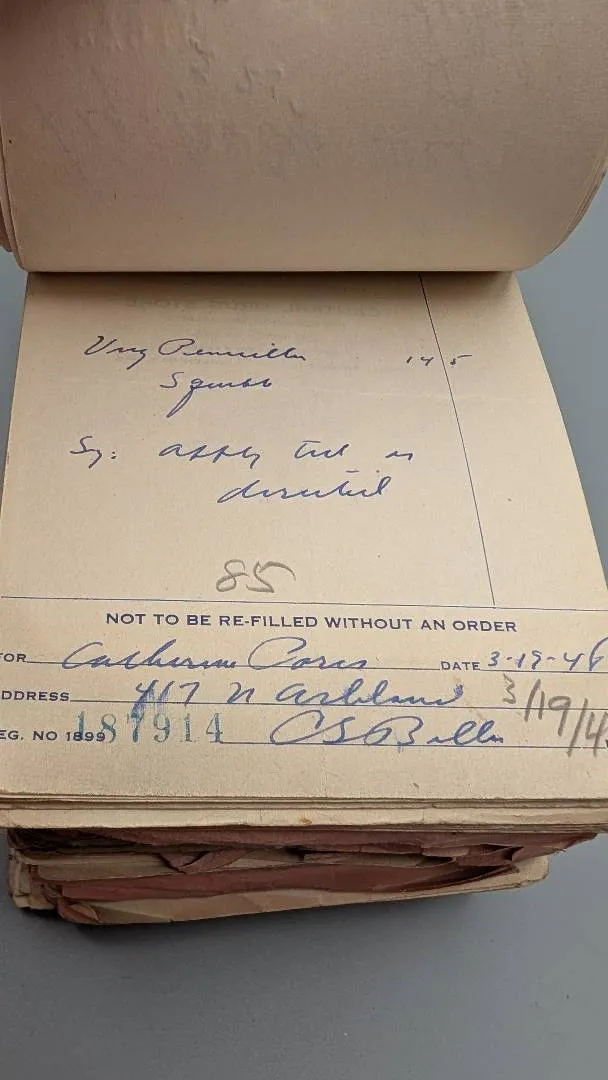 Ung Penicillin
Squibb
Sig: apply tid as
directed
85
NOT TO BE RE-FILLED WITHOUT AN ORDER
FOR Catherine DATE 3-19-46
ADDRESS 417 N Ashland 3/19/4
EG. NO 1899 187914 CS